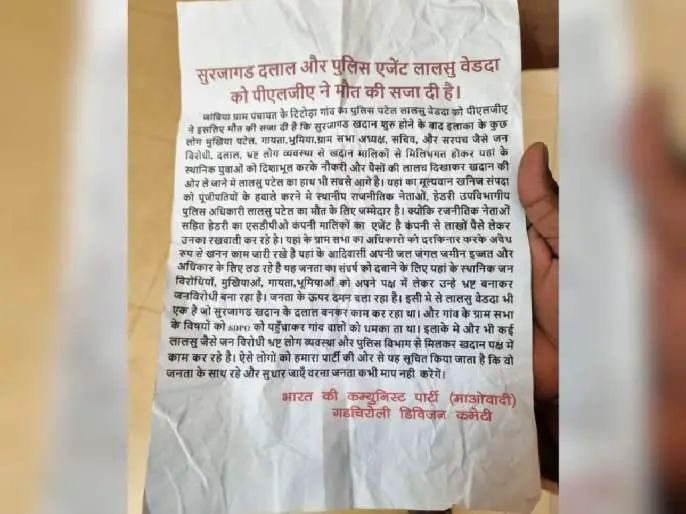 सुरजागड दलाल और पुलिस एजेंट लालसु वेडदा
को पीएलजीए ने मौत की सजा दी है।
जांबिया ग्राम पंचायत के टिटोड़ा गांव का पुलिस पटेल लालसु वेडदा को पीएलजीए
ने इसलिए मौत की सजा दी है कि सुरजागड खदान शुरु होने के बाद इलाका के कुछ
लोग मुखिया पटेल, गायता,भुमिया,ग्राम सभा अध्यक्ष, सचिव, और सरपंच जैसे जन
विरोधी, दलाल, भ्रष्ट लोग व्यवस्था से खदान मालिकों से मिलिभगत होकर यहां के
स्थानिक युवाओं को दिशाभूल करके नौकरी और पैसों की लालच दिखाकर खदान की
ओर ले जाने मे लालसु पटेल का हाथ भी सबसे आगे है। यहां का मूल्यवान खनिज संपदा
को पूंजीपतियों के हवाले करने मे स्थानीय राजनीतिक नेताओं, हेडरी उपविभागीय
पुलिस अधिकारी लालसु पटेल का मौत के लिए जम्मेदार है। क्योंकि रजनीतिक नेताओं
सहित हेडरी का एसडीपीओ कंपनी मालिकों का एजेंट है कंपनी से लाखों पैसे लेकर
उनका रखवाली कर रहे है। यहा के ग्राम सभा का अधिकारों को दरकिनार करके अवैध
रुप से खनन काम जारी रखे है यहां के आदिवासी अपनी जल जंगल जमीन इज्जत और
अधिकार के लिए लड रहे है यह जनता का संघर्ष को दबाने के लिए यहां के स्थानिक जन
विरोधियों, मुखिआओं, गायता,भूमियाओं को अपने पक्ष में लेकर उन्हे भ्रष्ट बनाकर
जनविरोधी बना रहा है। जनता के ऊपर दमन चला रहा है। इसी मे से लालसु वेडदा भी
एक है जो सुरजागड खदान के दलाल बनकर काम कर रहा था। और गांव के ग्राम सभा
के विषयों को SDPO को पहुँचाकर गांव वालों को धमका ता था। इलाके मे और भी कई
लालसु जैसे जन विरोधी भ्रष्ट लोग व्यवस्था और पुलिस विभाग से मिलकर खदान पक्ष में
काम कर रहे है। ऐसे लोगों को हमारा पार्टी की ओर से यह सूचित किया जाता है कि वो
जनता के साथ रहे और सुधार जाएँ वरना जनता कभी माप नही करेगे।
भारत की कम्युनिस्ट पार्टी (माओवादी)
गडचिरोली डिविजन कमेटी